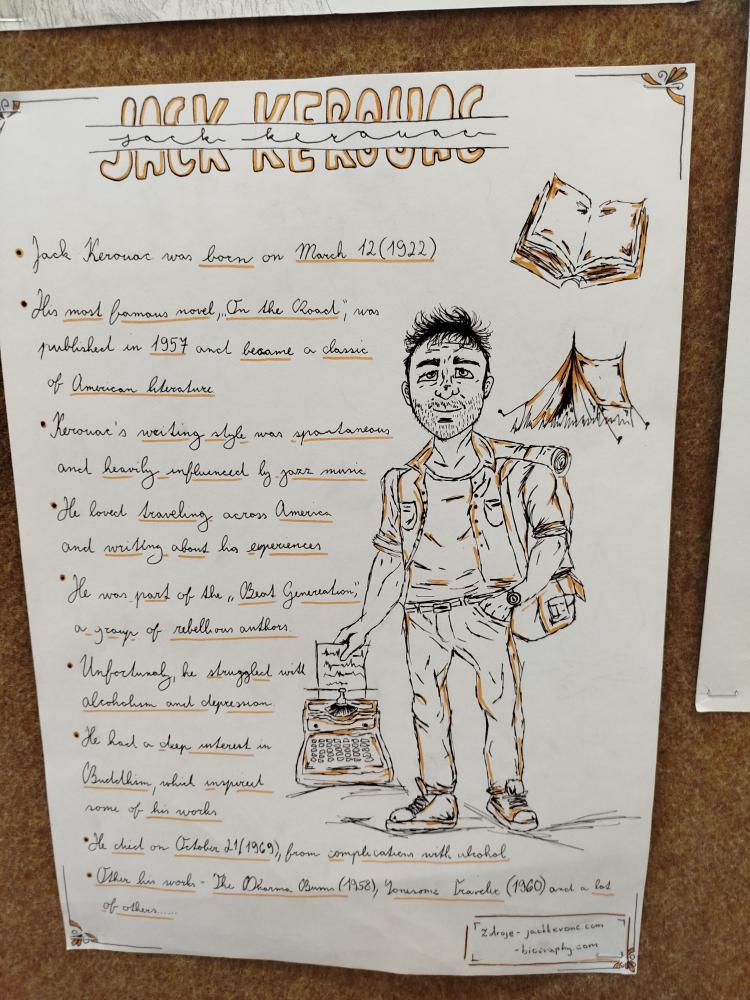 JACK KEROUAC
jack kerouac
Jack Kerouac was born on March 12 (1922)
His most famous novel, „On the Road“, was
published in 1957 and became a classic
of American literature
Kerouac's writing style was spontaneous
and heavily influenced by jazz music
He loved traveling across America
and writing about his experiences
He was part of the „Beat Genereation“,
a group of rebellious authors.
Unfortunaly, he struggled with
alcoholism and depression.
He had a deep interest in
Buddhim, which inspired
some of his works
He died on October 21 (1969), from complications with alcohol
Other his works - The Dharma Bums (1958), Lonesome Traveler (1960) and a lot
of others.....
Zdroje - jackkerouac.com
- biography.com